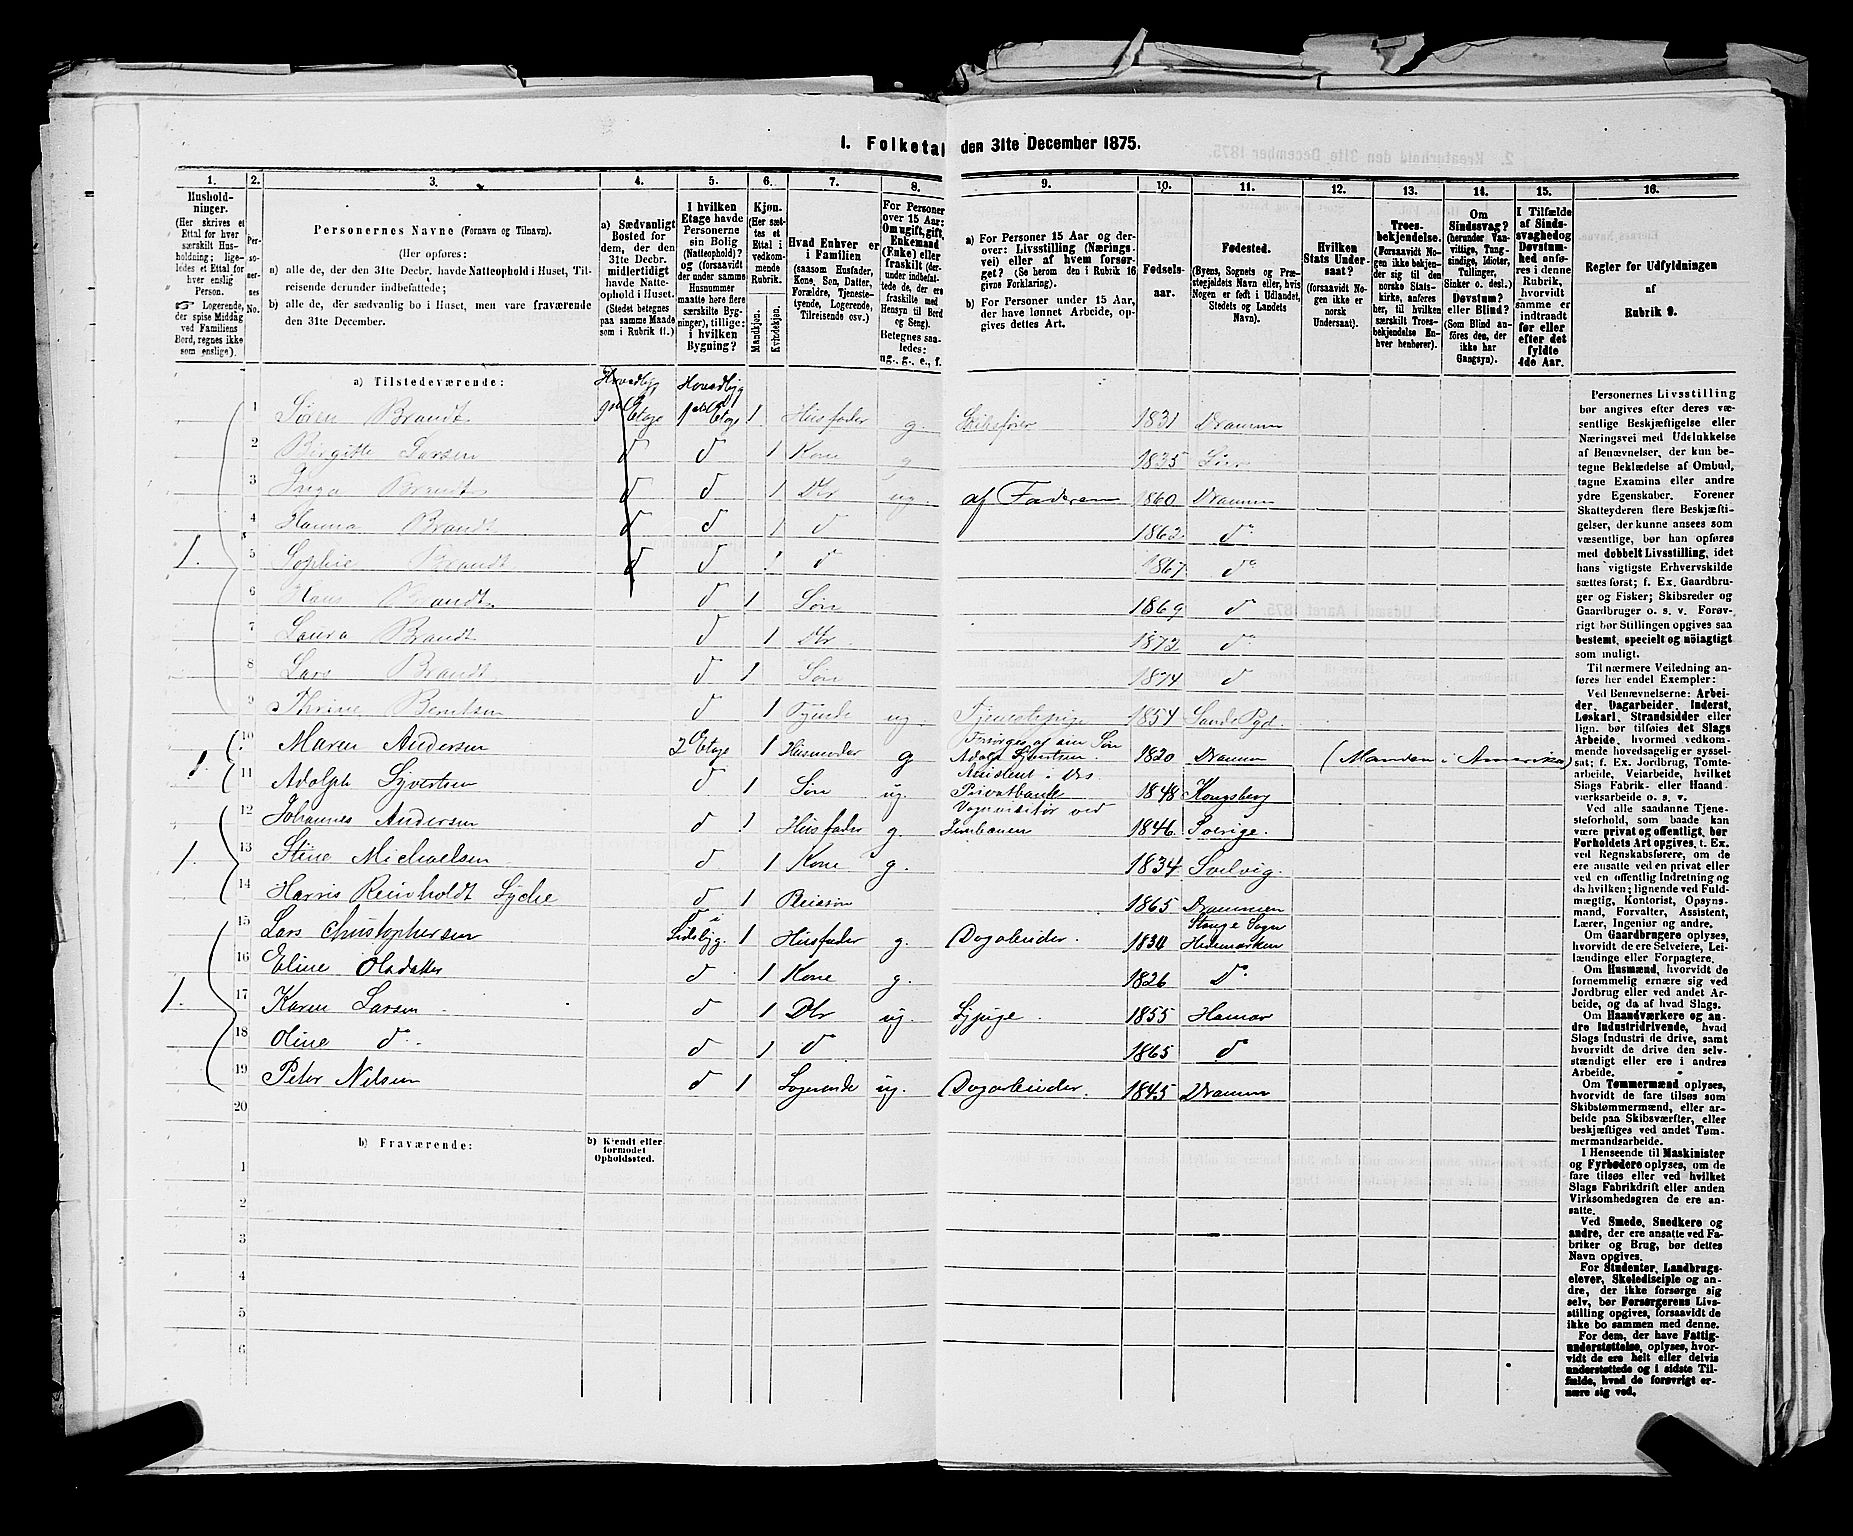 1. Folketal den 31te December 1875.
1. 2. 3. 4. 5. 6. 7. 8. 9. 10. 11. 12. 13. 14. 15. 16.
Hushold-
ninger.
(Her skrives et
Ettal for hver
særskilt Hus-
holdning; lige-
ledes et Ettal for
hver enslig
Person.
☞ Logerende,
der spise Middag
ved Familiens
Bord, regnes ikke
som enslige).
Per-
soner-
nes
No.
Personernes Navne (Fornavn og Tilnavn).
(Her opføres:
a) alle de, der den 31te Decbr. havde Natteophold i Huset, Til-
reisende derunder indbefattede;
b) alle de, der sædvanlig bo i Huset, men vare fraværende
den 31te December.
a) Sædvanligt
Bosted for
dem, der den
31te Decbr.
midlertidigt
havde Natte-
ophold i Huset.
(Stedet betegnes
paa samme Maade
som i Rubrik 11.)
I hvilken
Etage havde
Personerne
sin Bolig
(Natteophold)?
og (forsaavidt
der under samme
Husnummer
maatte høre flere
særskilte Byg-
ninger), tillige:
i hvilken
Bygning?
Kjøn.
(Her sæt-
tes et
Ettal i
vedkom-
mende
Rubrik.
Mandkjøn.
Kvindekjøn.
Hvad Enhver er
i Familien
(saasom Husfader,
Kone, Søn, Datter,
Forældre, Tjeneste-
tyende, Logerende,
Tilreisende osv.)
For Personer
over 15 Aar:
Om ugift, gift,
Enkemand
(Enke) eller
fraskilt (der-
under indbefat-
tede de, der ere
fraskilte med
Hensyn til Bord
og Seng).
Betegnes saa-
ledes:
ug., g., e., f.
a) For Personer 15 Aar og der-
over: Livsstilling (Nærings-
vei) eller af hvem forsør-
get? (Se herom den i Rubrik 16
givne Forklaring).
b) For Personer under 15 Aar,
der have lønnet Arbeide, op-
gives dettes Art.
Fødsels-
aar.
Fødested.
(Byens, Sognets og Præ-
stegjeldets Navn eller, hvis
Nogen er født i Udlandet,
Stedets og Landets
Navn).
Hvilken
Stats Under-
saat?
(forsaavidt No-
gen ikke er
norsk
Undersaat).
Troes-
bekjendelse.
(Forsaavidt No-
gen ikke bekjen-
der sig til den
norske Stats-
kirke, anføres
her, til hvilken
særskilt Troes-
bekjendelse En-
hver henhører).
Om
Sindssvag?
(herunder Van-
vittige, Tung-
sindige, Idioter,
Tullinger,
Sinker o. desl.)
Døvstum?
eller Blind?
(Som Blind an-
føres den, der
ikke har
Gangsyn).
I Tilfælde
af Sinds-
svaghed og
Døvstum-
hed anfø-
res i denne
Rubrik,
hvorvidt
samme er
indtraadt
før eller
efter det
fyldte
4de Aar.
Regler for Udfyldningen
af
Rubrik 9.
a) Tilstedeværende:
1 Søren Brandt Etage Etage 1 Husfader g. Skibsfører 1831 Drammen
2 Birgitte Larsen d d 1 Kone g 1835 Lier
3 Inga Brandt d d 1 Dtr ug. af Faderen 1860 Drammen
4 Hanna Brandt d d 1 d 1862 do
1. 5 Sophie Brandt d d 1 d 1867 do
6 Hans Brandt d 1 Søn 1869 d
7 Laura Brandt d 1 Dtr 1872 do
8 Lars Brandt d 1 Søn 1874 d
9 Thrine Berntsen d 1 Tyende ug Tjenestepige 1854 Sande Pgd.
10 Maren Andersen 2 Etage 1 Husmoder g Forsørges af sin Søn Adolph Syvertsen. 1820 Drammen (Manden i Amerika)
1. 11 Adolph Syvertsen d 1 Søn ug. Assistent i Privatbank 1848 Kongsberg
12 Johannes Andersen d 1 Husfader g. Vognvisitør ved Jernbanen 1846 Sverige.
1. 13 Stine Michaelsen d 1 Kone g. 1834 Svelvig.
14 Harris Reinholdt Lyche d 1 Pleiesøn 1865 Drammen
15 Lars Christophersen Sidebyg. 1 Husfader g. Dagarbeider. 1834 Stange Sogn Hedemarken
16 Eline Olsdatter d 1 Kone g. 1826 Do
1. 17 Karen Larsen d 1 Dtr ug. Sypige 1855 Hamar
18 Oline d d 1 d 1865 d
19 Peter Nilsen d 1 Logerende ug. Dagarbeider. 1845 Drammen
20
b) Fraværende:
b) Kjendt eller
formodet
Opholdssted.
1
2
3
4
5
6
Personernes Livsstilling
bør angives efter deres væ-
sentlige Beskjæftigelse eller
Næringsvei med Udelukkelse
af Benævnelser, der kun be-
tegne Beklædelse af Ombud,
tagne Examina eller andre
ydre Egenskaber. Forener
Skatteyderen flere Beskjæfti-
gelser, der kunne ansees som
væsentlige, bør han opføres
med dobbelt Livsstilling, idet
hans vigtigste Erhvervskilde
sættes først; f. Ex. Gaardbru-
ger og Fisker; Skibsreder og
Gaardbruger o. s. v. Forøv-
rigt bør Stillingen opgives saa
bestemt, specielt og nöiagtigt
som muligt.
Til nærmere Veiledning an-
føres her endel Exempler:
Ved Benævnelserne: Arbei-
der, Dagarbeider, Inderst,
Løskarl, Strandsidder eller
lign. bør tilføies det Slags
Arbeide, hvormed vedkom-
mende hovedsagelig er syssel-
sat; f. Ex. Jordbrug, Tomte-
arbeide, Veiarbeide, hvilket
Slags Fabrik- eller Haand-
værksarbeide o. s. v.
Ved alle saadanne Tjene-
steforhold, som baade kan
være privat og offentligt, bør
Forholdets Art opgives, t. Ex.
ved Regnskabsførere, om de
ere ansatte ved en privat eller
ved en offentlig Indretning og
da hvilken; lignende ved Fuld-
mægtig, Kontorist, Opsyns-
mand, Forvalter, Assistent,
Lærer, Ingeniør og andre.
Om Gaardbrugere oplyses,
hvorvidt de ere Selveiere, Lei-
lændinge eller Forpagtere.
Om Husmænd, hvorvidt de
fornemmelig ernære sig ved
Jordbrug eller ved andet Ar-
beide, og da af hvad Slags.
Om Haandværkere og an-
dre Industridrivende, hvad
Slags Industri de drive, samt
hvorvidt de drive den selv-
stændigt eller ere i andres
Arbeide.
Om Tømmermænd oplyses,
hvorvidt de fare tilsøs som
Skibstømmermænd, eller ar-
beide paa Skibsværfter, eller
beskjæftiges ved andet Tøm-
mermandsarbeide.
I Henseende til Maskinister
og Fyrbødere oplyses, om de
fare tilsøs eller ved hvilket
Slags Fabrikdrift eller anden
Virksomhedsgren de ere an-
satte.
Ved Smede, Snedkere og
andre, der ere ansatte ved Fa-
briker og Brug, bør dettes
Navn opgives.
For Studenter, Landbrugs-
elever, Skoledisciple og an-
dre, der ikke forsørge sig
selv, bør Forsørgerens Livs-
stilling opgives, forsaavidt de
ikke bo sammen med denne.
For dem, der have Fattig-
understøttelse, oplyses, hvor-
vidt de ere helt eller delvis
understøttede og i sidste Til-
fælde, hvad de forøvrigt er-
nære sig ved.